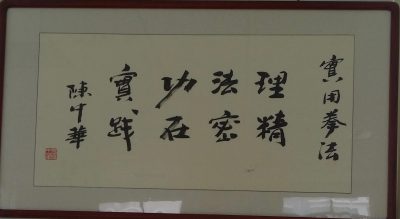 實用拳法
理精
法密
功在
實踐
陳中華